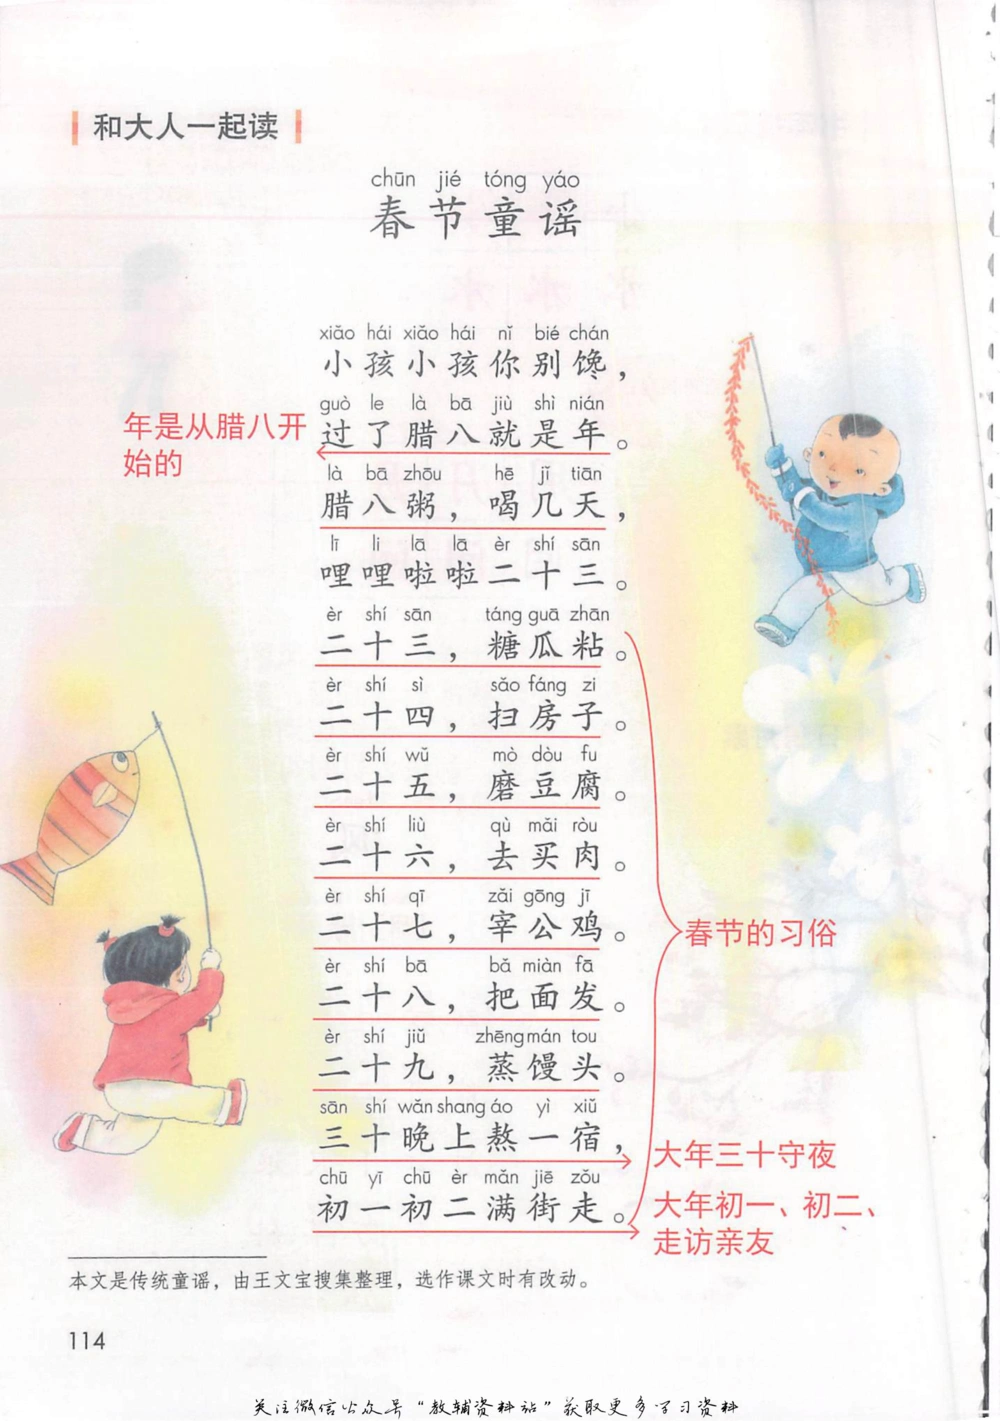 和大人一起读
chūn jié tóng yáo
春节童谣
xiǎo hái xiǎo hái nǐ bié chán
小孩小孩你别馋，
guò le là bā jiù shì nián
过了腊八就是年。
年是从腊八开
始的
là bā zhōu hē jǐ tiān
腊八粥，喝几天，
lī li lā lā èr shí sān
哩哩啦啦二十三。
èr shí sān táng guā zhān
二十三，糖瓜粘。
èr shí sì sǎo fáng zi
二十四，扫房子。
èr shí wǔ mò dòu fu
二十五，磨豆腐。
èr shí liù qù mǎi ròu
二十六，去买肉。
èr shí qī zǎi gōng jī
二十七，宰公鸡。
春节的习俗
èr shí bā bǎ miàn fā
二十八，把面发。
èr shí jiǔ zhēng mán tou
二十九，蒸馒头。
sān shí wǎn shang áo yì xiǔ
三十晚上熬一宿，
大年三十守夜
chū yī chū èr mǎn jiē zǒu
初一初二满街走。
大年初一、初二、
走访亲友
本文是传统童谣，由王文宝搜集整理，选作课文时有改动。
114
关注微信公众号“教辅资料站”获取更多学习资料